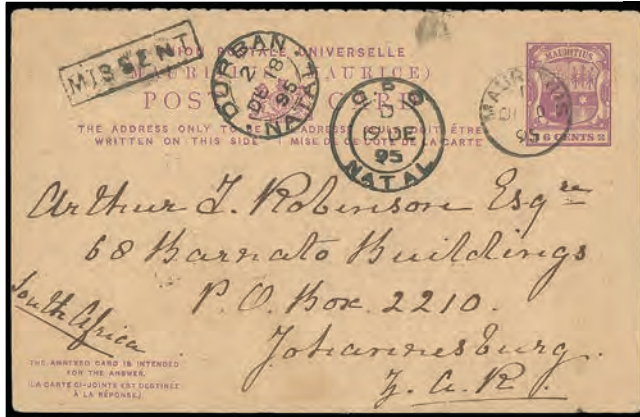 MISSENT
UNION POSTALE UNIVERSELLE
MAURITIUS (MAURICE)
POST CARD
THE ADDRESS ONLY TO BE
WRITTEN ON THIS SIDE
DURBAN
2
DE 18
95
NATAL
G.P.O
D
19 DE
95
NATAL
MAURITIUS
95
MAURITIUS
6 CENTS
Arthur J. Robinson Esqre
68 Barnato Buildings
P.O. Box. 2210.
Johannesburg.
Z.A.R.
South Africa
THE ANNEXED CARD IS INTENDED
FOR THE ANSWER.
(LA CARTE CI-JOINTE EST DESTINÉE
À LA RÉPONSE.)